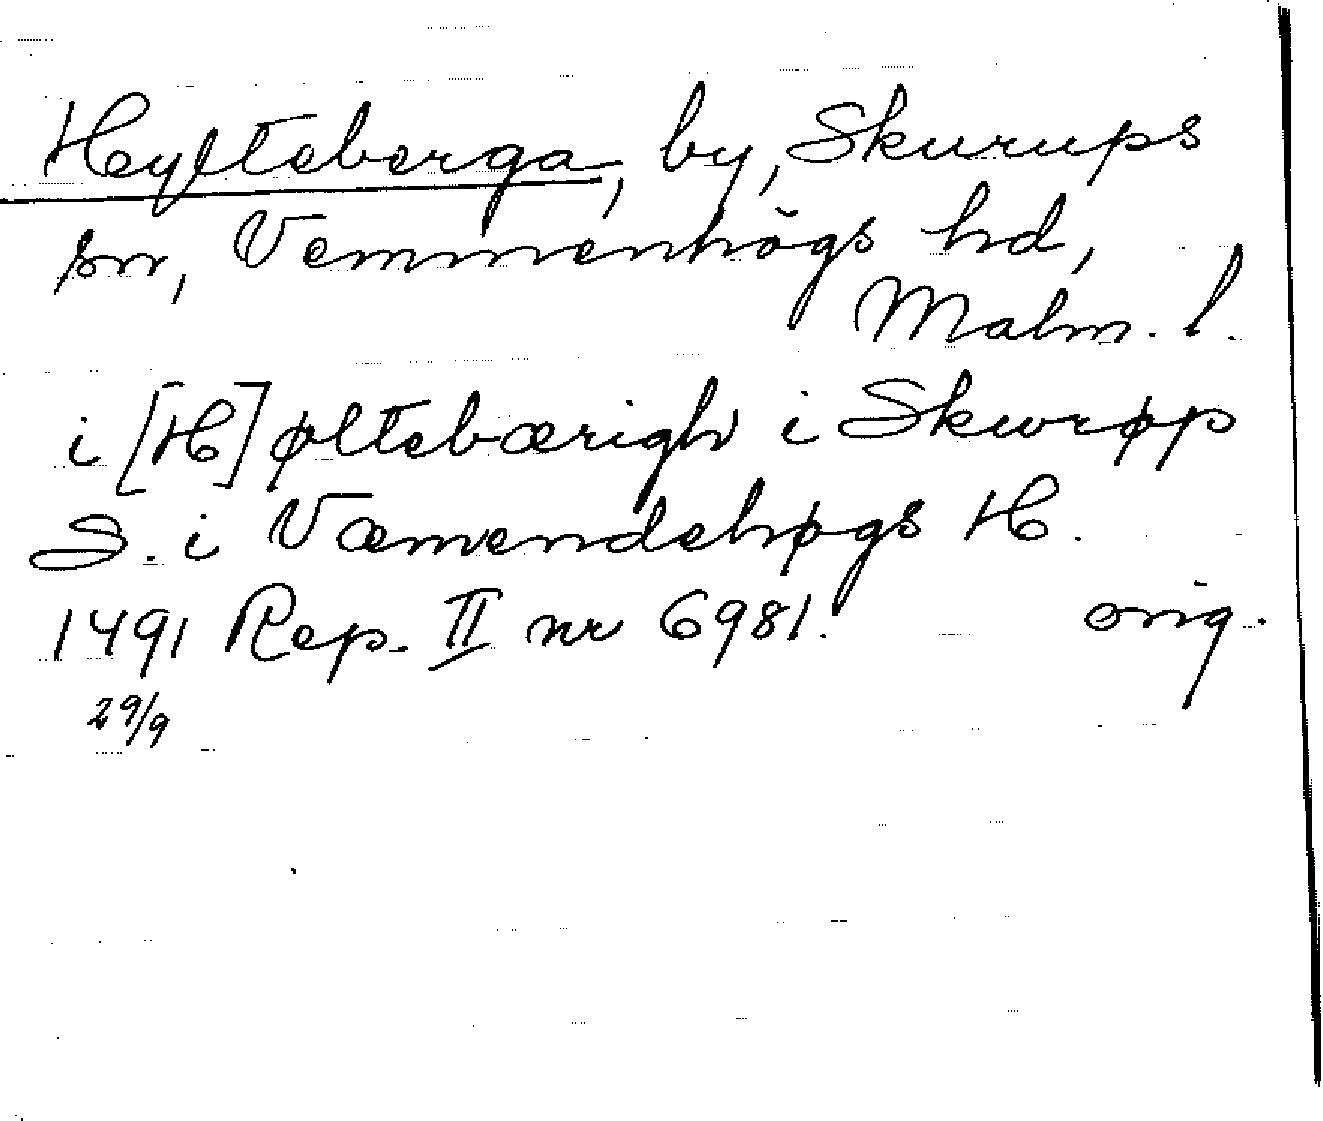 Hylteberga, by, Skurups
sn, Vemmenhögs hd,
Malm. l.
i [H]øltebærigh i Skurøp
S. i Væmendehøgs H.
1491 Rep. II nr 6981. orig.
29/9